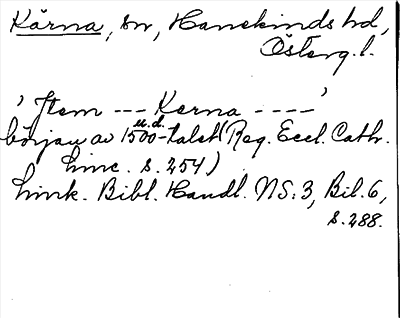 Kärna, sn, Hanekinds hd,
Österg. l.
'Jtem --- Kerna ----'
u. d.
början av 1500-talet (Reg. Eccl. Cath.
Linc. s. 254)
Link. Bibl. Handl. NS: 3, Bil. 6,
s. 288.